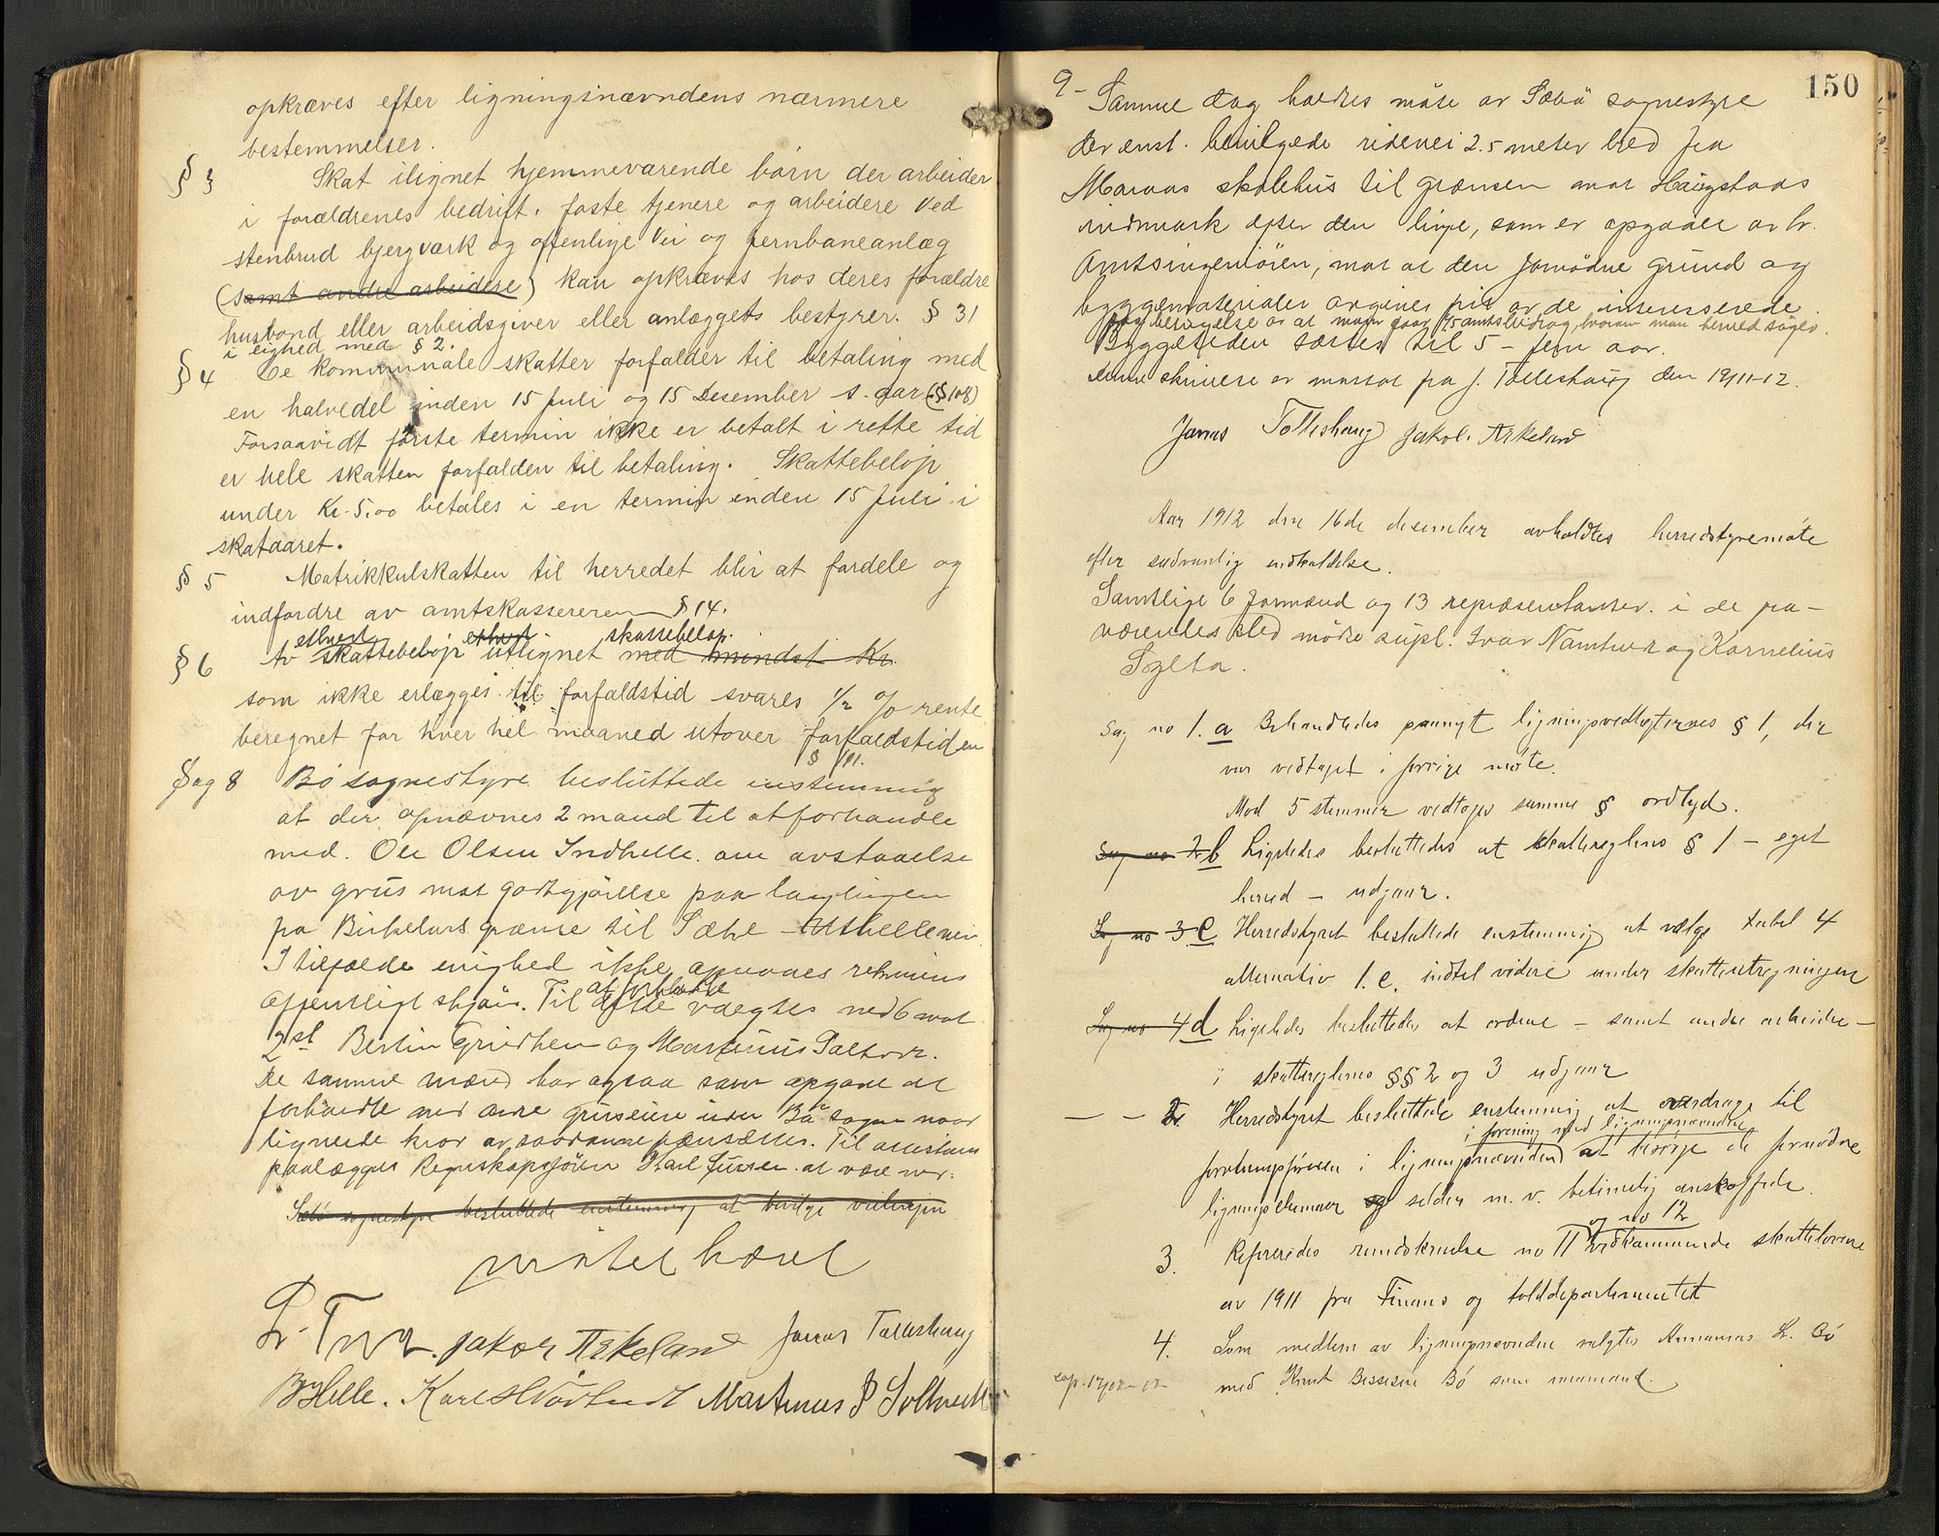 opkræves efter ligningsnævndens nærmere
bestemmelser.
§ 3 Skat ilignet hjemmeværende børn der arbeider
i forældrenes bedrift, faste tjenere og arbeidere ved
stenbrud bjergværk og offenlige Vei og jernbaneanlæg
(samt andre arbeidere) kan opkræves hos deres forældre
husbond eller arbeidsgiver eller anlæggets bestyrer. § 31
i lighed med § 2.
§ 4 De kommunale skatter forfalder til betaling med
en halvedel inden 15 Juli og 15 Desember s. aar (§ 108)
Forsaavidt første termin ikke er betalt i rette tid
er hele skatten forfalden til betaling. Skattebeløp
under Kr. 5.00 betales i en termin inden 15 Juli i
skataaret.
§ 5 Matrikkulskatten til herredet blir at fordele og
indfordre av amtskassereren § 14.
ethvert ethvert skattebeløp.
§ 6 Av skattebeløp utlignet med mindst Kr.
som ikke erlægges til forfaldstid svares 1/2 % rente
beregnet for hver hel maaned utover forfaldstiden
§ 111.
Sag 8 Bø sognestyre besluttede enstemmig
at der opnævnes 2 mand til at forhandle
med. Ole Olsen Indhelle om avstaaelse
av grus mot godtgjørelse paa
pa Birkelands grænse til Sæbø - Uthelle vei
I tilfælde enighed ikke opnaaes
offentligt skjøn. Til at forhandle dette valgtes med 6 mot
2 st
De samme mænd har ogsaa som opgave at
forhandle med andre gruseiere inden Bø sogn naar
lignende krav av saadanne fremsættes. Til
paalægges Regnskapsfører at være
Sæbø sognestyre besluttede enstemmig at bevilge
møtet hævet
Jakob Askeland Jonas Tolleshaug
B Helle. Martinus P Soltvedt
150
9 - Samme dag holdtes møte av Sæbø sognestyre
der enst. bevilgede ridevei 2.5 meter bred fra
Maraas skolehus til grænsen mot Haugstads
indmark efter den linje, som er opgaaet av hr.
Amtsingeniøren, mot at den fornødne grund og
byggematerialer avgives frit av de interesserede.
Byggetiden sættes til 5 - fem aar.
Jonas Tolleshaug Jakob. Askeland
Aar 1912 den 16de desember avholdtes herredstyremøte
efter sedvanlig indkaldelse.
Samtlige 6 formænd og 13 repræsentanter. i de fra-
værendes sted møtte supl. Ivar Namtvedt og Kornelius
Sag no 1. a Behandledes paanyt ligningsvedtegternes § 1, der
var vedtaget i forrige møte.
Mod 5 stemmer vedtoges samme § ordlyd.
Sag no 2 b Ligeledes besluttedes at skattereglens § 1 - eget
herred - udgaar.
Sag no 3 c Herredstyret besluttede enstemmig at vælge tabel 4
alternativ 1. c. indtil videre under skatteutregningen
Sag no 4 d Ligeledes besluttedes at ordene - samt andre arbeidere -
i skattereglenes §§ 2 og 3 udgaar
— - 2. Herredstyret besluttede enstemmig at overdrage til
i forening med ligningsnævnden
forretningsføreren i ligningsnævnden at besørge de fornødne
ligningsskemaer og sedler m. v. betimelig anskaffede.
og no 12
3. Refereredes rundskrivelse no 11 vedkommende skattelovene
av 1911 fra Finans og tolddepartementet
4. Som medlem av ligningsnævnden valgtes L. Bø
med Knut Bø som varamand.